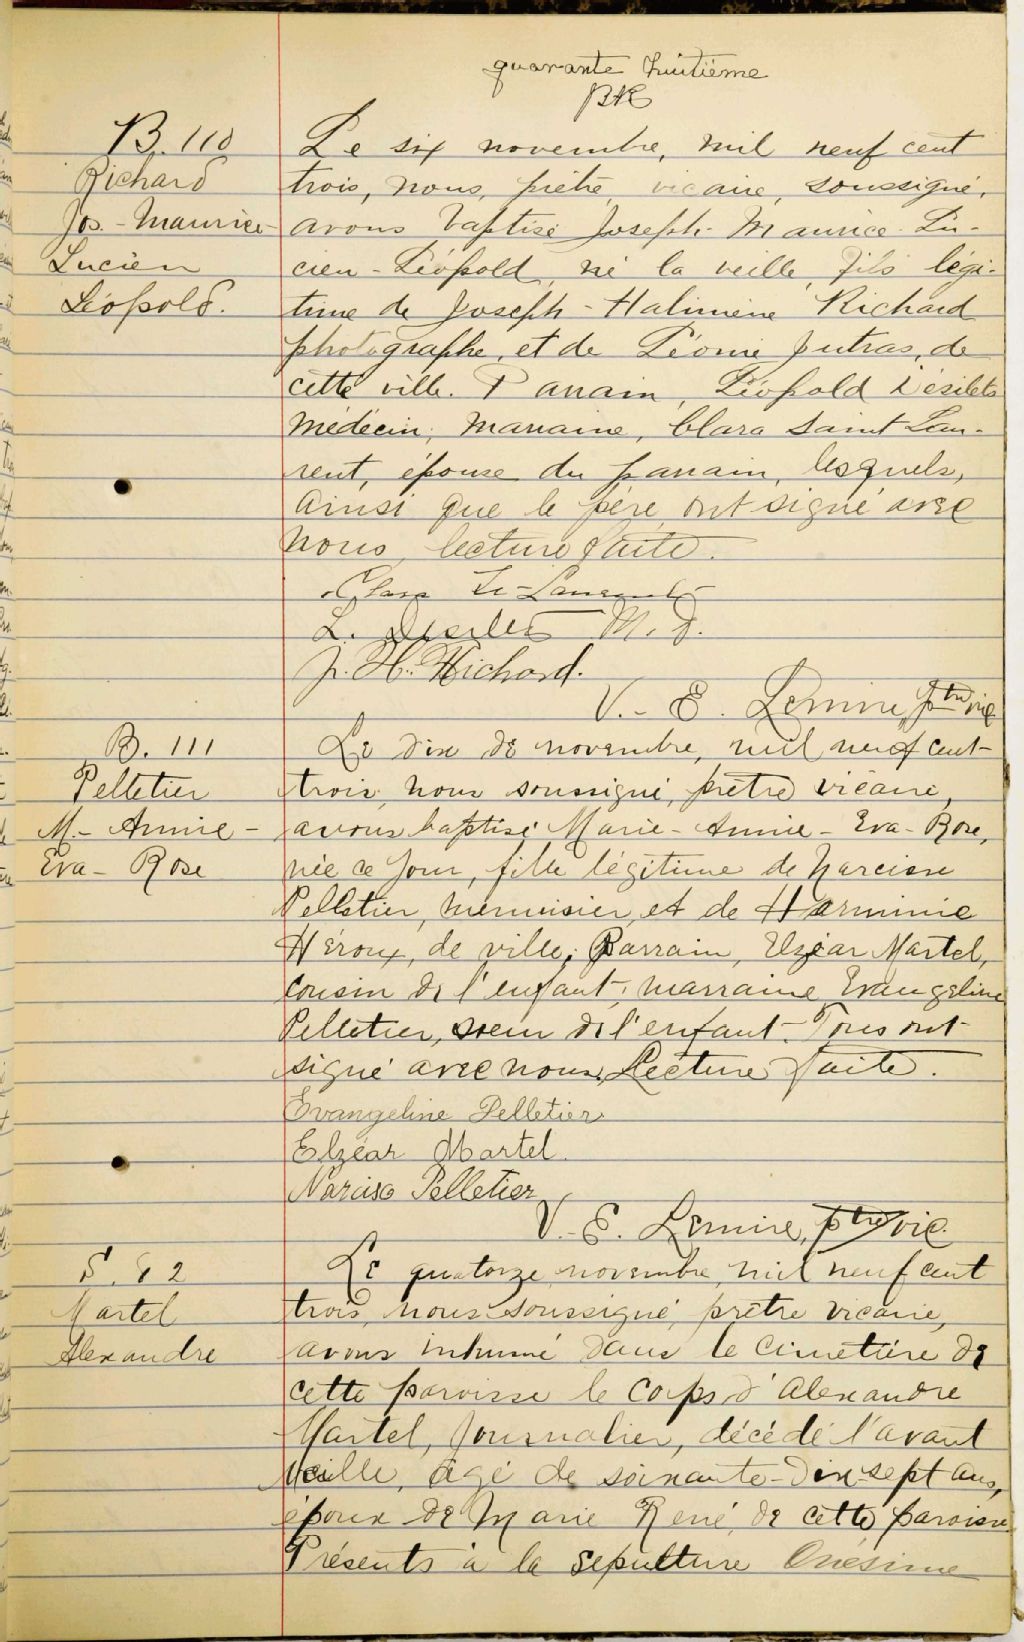 quarante huitième
B. 110
Richard
Jos. - Maurice -
Lucien
Léopold.
Le six novembre, mil neuf cent
trois, nous, prêtre vicaire, soussigné,
avons baptisé Joseph - Maurice - Lu-
cien - Léopold, né la veille, fils légi-
time de Joseph - Halimène Richard
photographe, et de Léonie Jutras, de
cette ville. Parrain, Léopold Désilets
médecin; marraine, Clara Saint Lau-
rent, épouse du parrain, lesquels,
ainsi que le père ont signé avec
nous, lecture faite.
Clara St-Laurent
L. Desilets M.D.
J. H. Richard.
V. - E. Lemire, ptre vic
B. 111
Pelletier
M. - Annie -
Eva - Rose
Le dix de novembre, mil neuf cent
trois, nous soussigné, prêtre vicaire,
avons baptisé Marie - Annie - Eva - Rose,
née ce jour, fille légitime de Narcisse
Pelletier, menuisier, et de Herminie
Héroux, de ville; Parrain, Elzéar Martel,
cousin de l'enfant; marraine Evangeline
Pelletier, soeur de l'enfant. Tous ont
signé avec nous, Lecture faite.
Evangeline Pelletier
Elzéar Martel.
Narcise Pelletier
V. - E. Lemire, ptre vic.
S. 82
Martel
Alexandre
Le quatorze novembre, mil neuf cent
trois, nous soussigné, prêtre vicaire,
avons inhumé dans le cimetière de
cette paroisse le corps d'Alexandre
Martel, journalier, décédé l'avant
veille, agé de soixante-dix-sept ans,
époux de Marie René, de cette paroisse
Présents à la sépulture Onésime